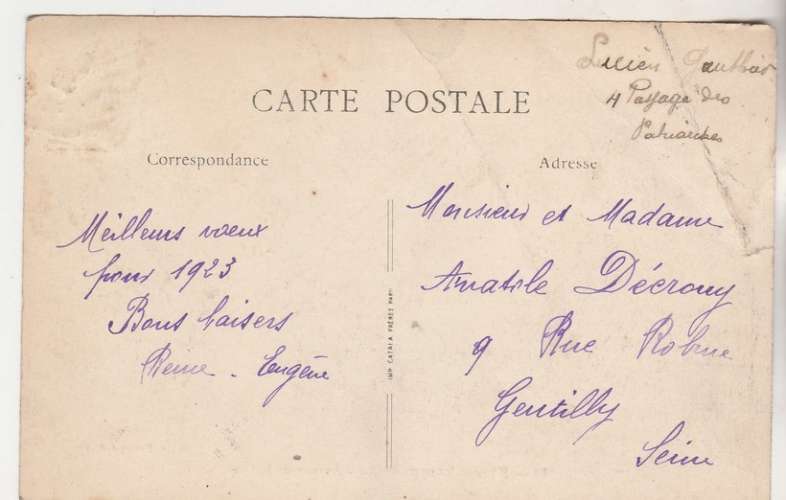 Lucien Gauthier
4 Passage des
Patriarches
CARTE POSTALE
Correspondance
Adresse
Meilleurs vœux
pour 1923
Bons baisers
Reine - Eugène
IMP. CATALA FRÈRES PARIS
Monsieur et Madame
Anatole Décrouy
9 Rue
Gentilly
Seine